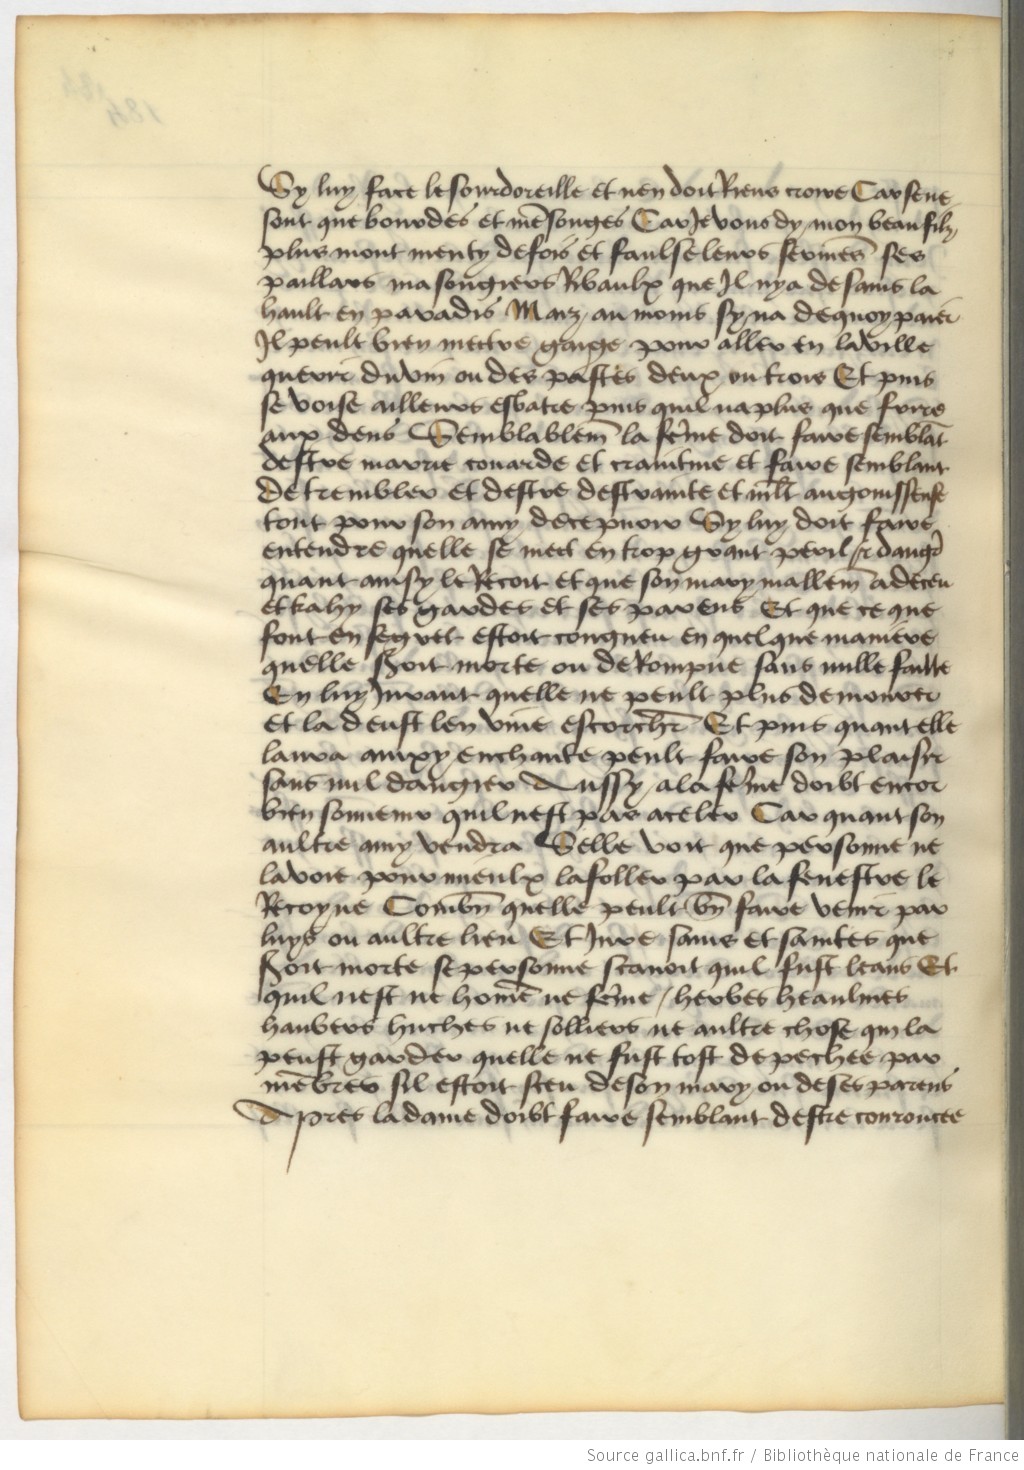 Sy luy face le sourdoreille et nen doit Riens croire Car se ne
sont que bourdes et mẽsonges Car Je vous dy mon beau filz
plus mont menty de fois et faulse leurs sermẽs ses
paillars masongiers Ribaulx que Il nya de sains la
hault en paradis Maiz au moins sy na de quoy paier
Il peult bien mectre gaige pour aller en la ville
querir du vin ou des pastes deux ou trois Et puis
se voise ailleurs esbatre puis quil na plus que frire
aux dens Semblablem̃ la fem̃e doit faire semblãt
destre marrie couarde et craintiue et faire semblant
de trembler et destre destrainte et ml̃t angouissense
tout pour son amy decepuoir Sy luy doit faire
entendre quelle se mect en trop grant peril dang̃
quant ainsy le Recoit et que son mary mallem̃ a deceu
et trahy ses gardes et ses parens Et que ce que
font en segret estoit congneu en quelque maniere
quelle seroit morte ou de Rompue sans nulle faille
En luy Jurant quelle ne peult plus demourer
et la deust len viue escorcher Et puis quant elle
laura ainxy enchante peult faire son plaisir
sans nul dangier Aussy a la fem̃e doibt encor
bien souuenir quil nest par aceler Car quant son
aultre amy vendra Selle voit que personne ne
la voie pour mieulx lafoller par la fenestre le
Recoyue Combñ quelle peult bñ faire venir par
luys ou aultre lieu Et Jure sains et saintes que
seroit morte se personne scauoit quil fust leans Et
quil nest ne hom̃e ne fem̃e / herbes heaulmes
haubers huches ne solliers ne aultre chose qui la
peust garder quelle ne fust tost depechee par
mẽbres sil estoit sceu de son mary ou de ses parens
Apres la dame doibt faire semblant destre couroucee
Source gallica.bnf.fr / Bibliothèque nationale de France